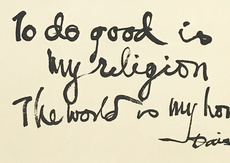 To do good is
my religion
The world is my